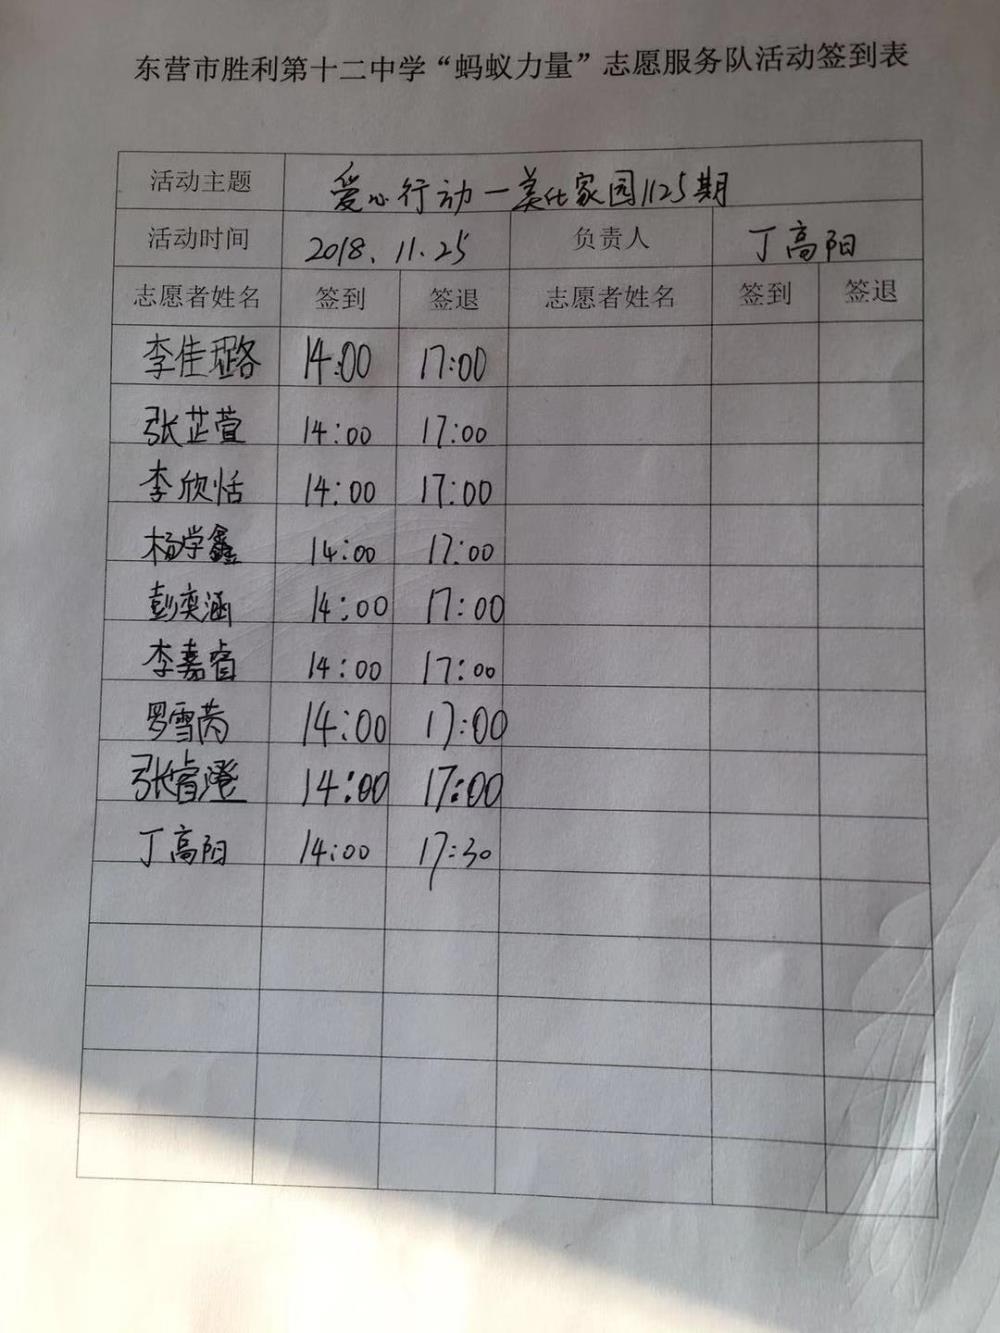 东营市胜利第十二中学“蚂蚁力量”志愿服务队活动签到表
活动主题 爱心行动一美化家园1125期
活动时间 2018.11.25 负责人 丁高阳
志愿者姓名 签到 签退 志愿者姓名 签到 签退
李佳璐 14:00 17:00
张芷萱 14:00 17:00
李欣恬 14:00 17:00
杨学鑫 14:00 17:00
彭奕涵 14:00 17:00
李嘉睿 14:00 17:00
罗雪芮 14:00 17:00
张睿澄 14:00 17:00
丁高阳 14:00 17:30